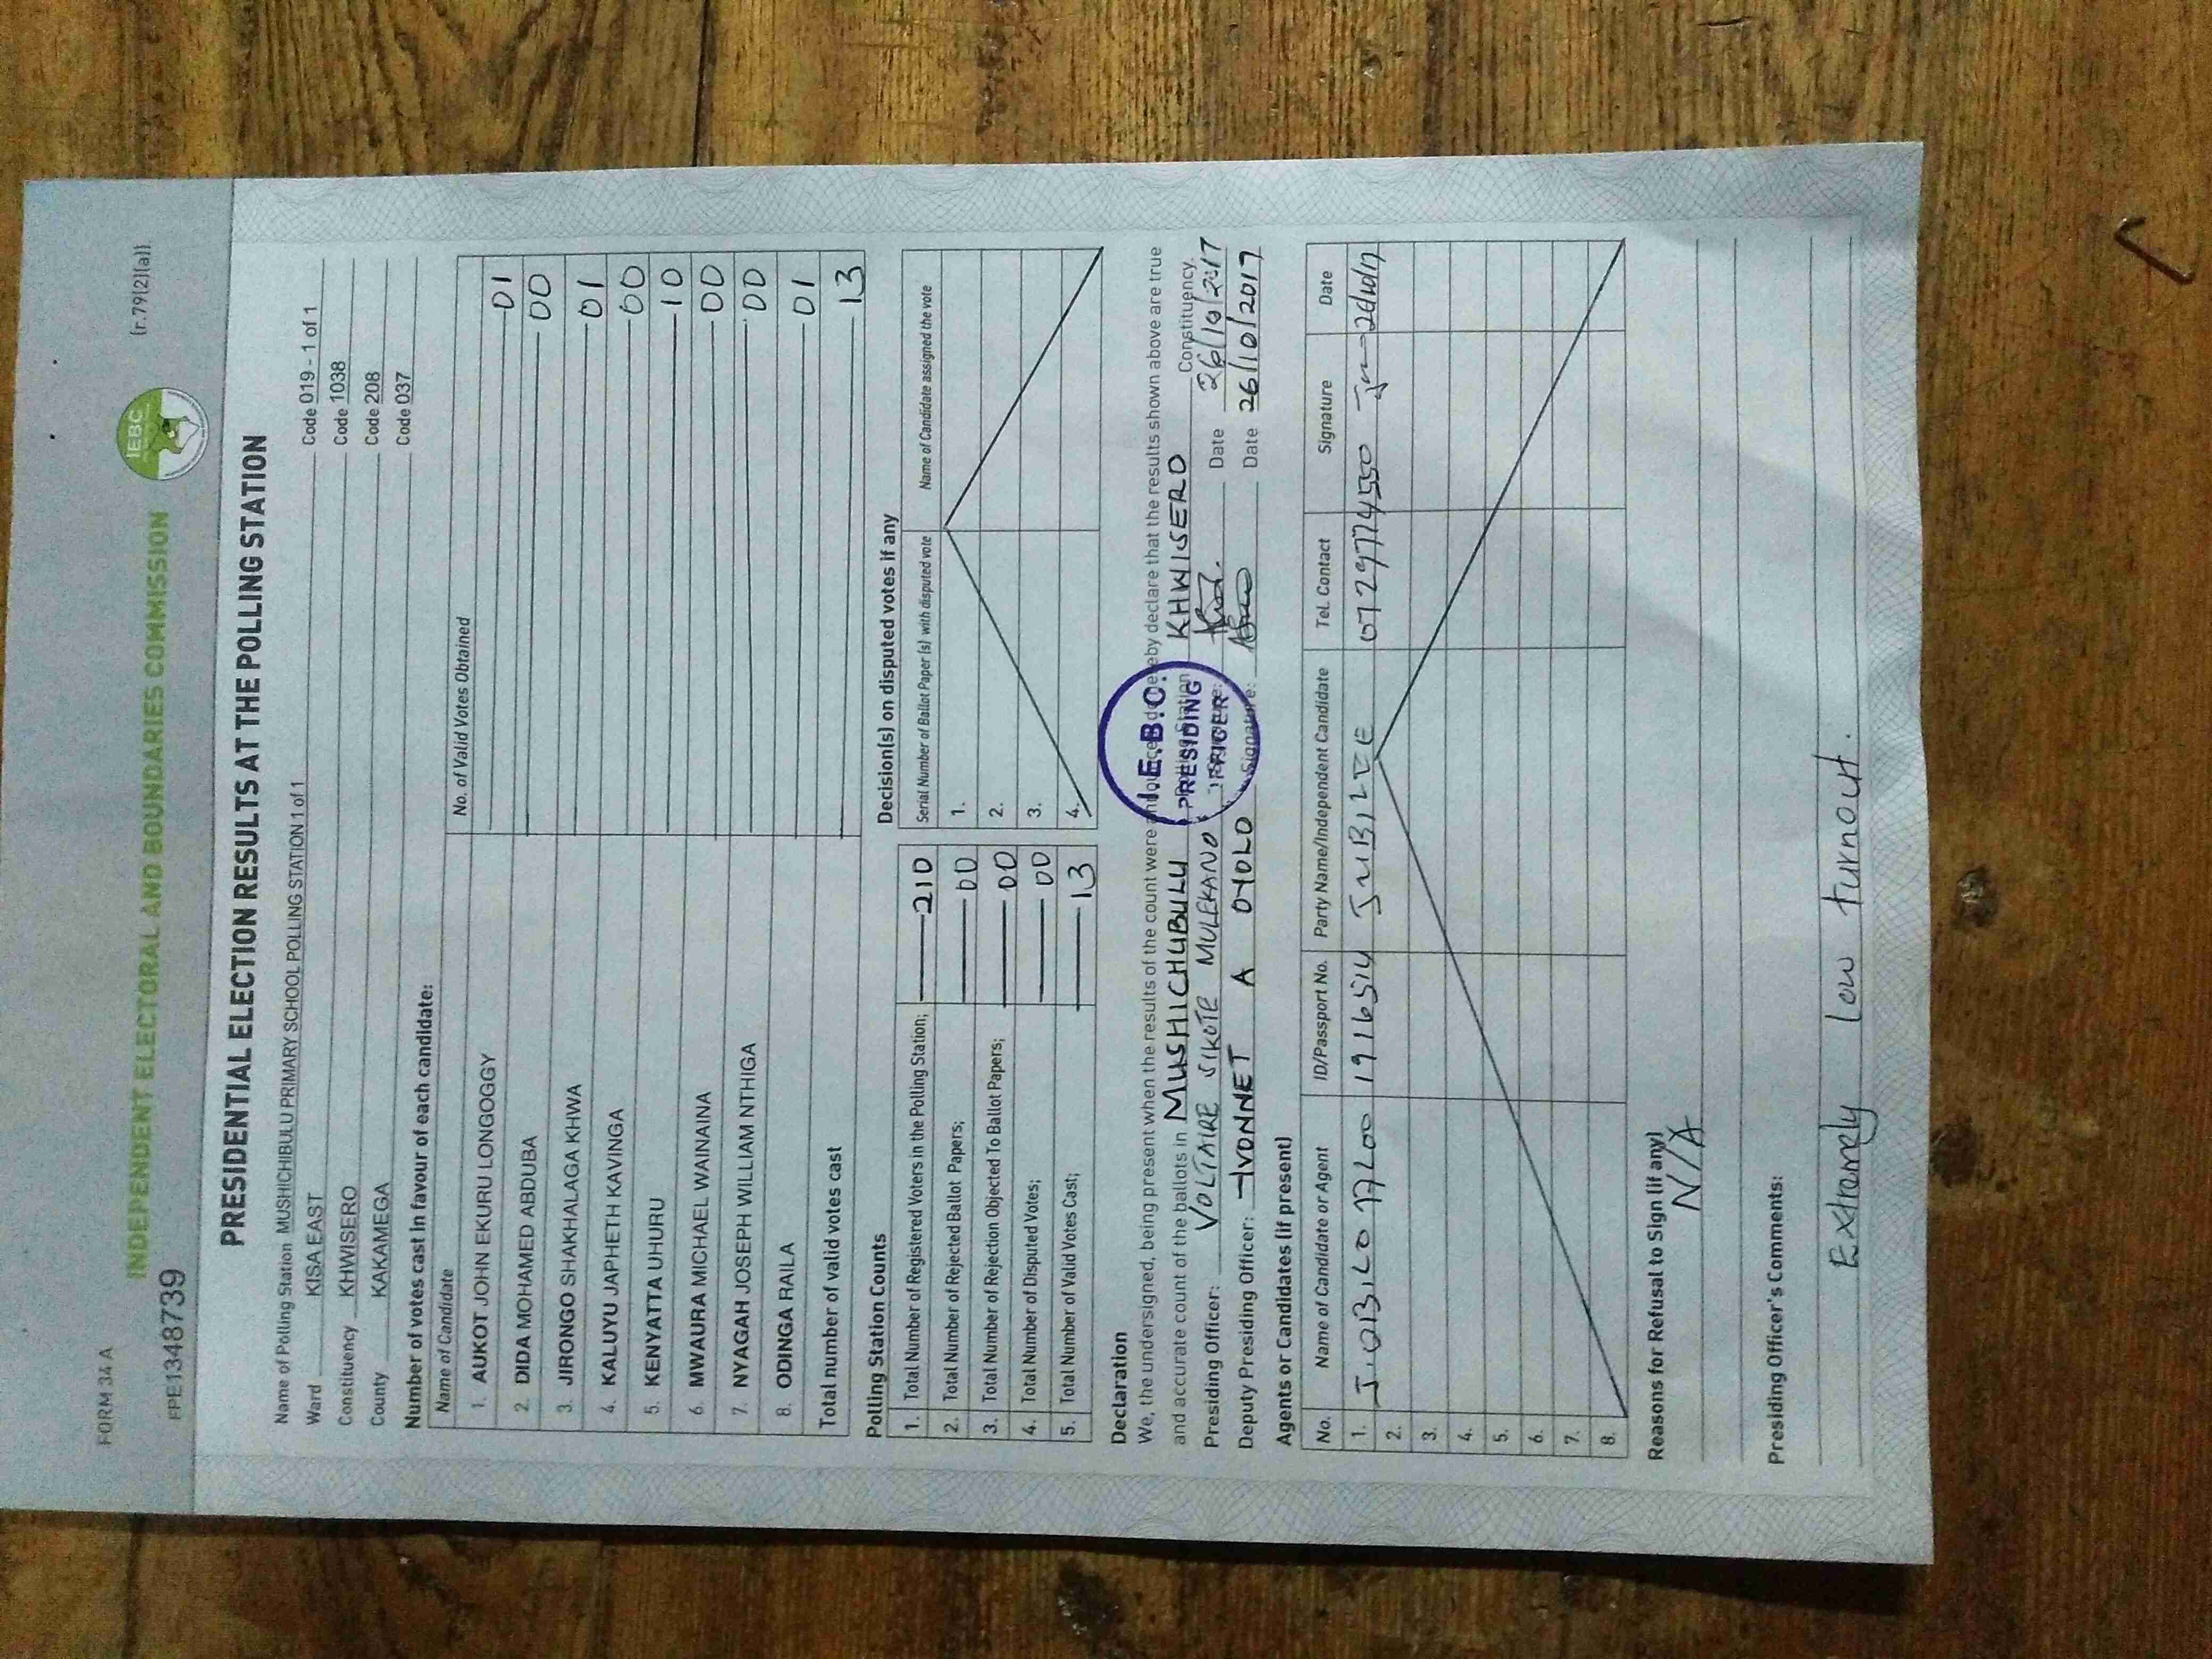 FORM 34 A
(r.79(2)(a))
IEBC
INDEPENDENT ELECTORAL AND BOUNDARIES COMMISSION
FPE1348739
PRESIDENTIAL ELECTION RESULTS AT THE POLLING STATION
Name of Polling Station MUSHICHIBULU PRIMARY SCHOOL POLLING STATION 1 of 1 Code 019 - 1 of 1
Ward KISA EAST Code 1038
Constituency KHWISERO Code 208
County KAKAMEGA Code 037
Number of votes cast in favour of each candidate:
Name of Candidate No. of Valid Votes Obtained
1. AUKOT JOHN EKURU LONGOGGY 01
2. DIDA MOHAMED ABDUBA 00
3. JIRONGO SHAKHALAGA KHWA 01
4. KALUYU JAPHETH KAVINGA 00
5. KENYATTA UHURU 10
6. MWAURA MICHAEL WAINAINA 00
7. NYAGAH JOSEPH WILLIAM NTHIGA 00
8. ODINGA RAILA 01
Total number of valid votes cast 13
Polling Station Counts
1. Total Number of Registered Voters in the Polling Station; 210
2. Total Number of Rejected Ballot Papers; 00
3. Total Number of Rejection Objected To Ballot Papers; 00
4. Total Number of Disputed Votes; 00
5. Total Number of Valid Votes Cast; 13
Decision(s) on disputed votes if any
Serial Number of Ballot Paper (s) with disputed vote Name of Candidate assigned the vote
1.
2.
3.
4.
Declaration
We, the undersigned, being present when the results of the count were announced, do hereby declare that the results shown above are true
and accurate count of the ballots in MUSHICHUBULU Polling Station KHWISERO Constituency.
Presiding Officer: VOLTAIRE SIKOTE MULEKANO Signature: Date 26/10/2017
Deputy Presiding Officer: IVONNET A OYOLO Signature: Date 26/10/2017
I.E.B.C.
PRESIDING
OFFICER
Agents or Candidates (if present)
No. Name of Candidate or Agent ID/Passport No. Party Name/Independent Candidate Tel. Contact Signature Date
1. 19116514 JUBILEE 0729774550
2.
3.
4.
5.
6.
7.
8.
Reasons for Refusal to Sign (if any)
N/A
Presiding Officer's Comments:
Extremely low turnout.